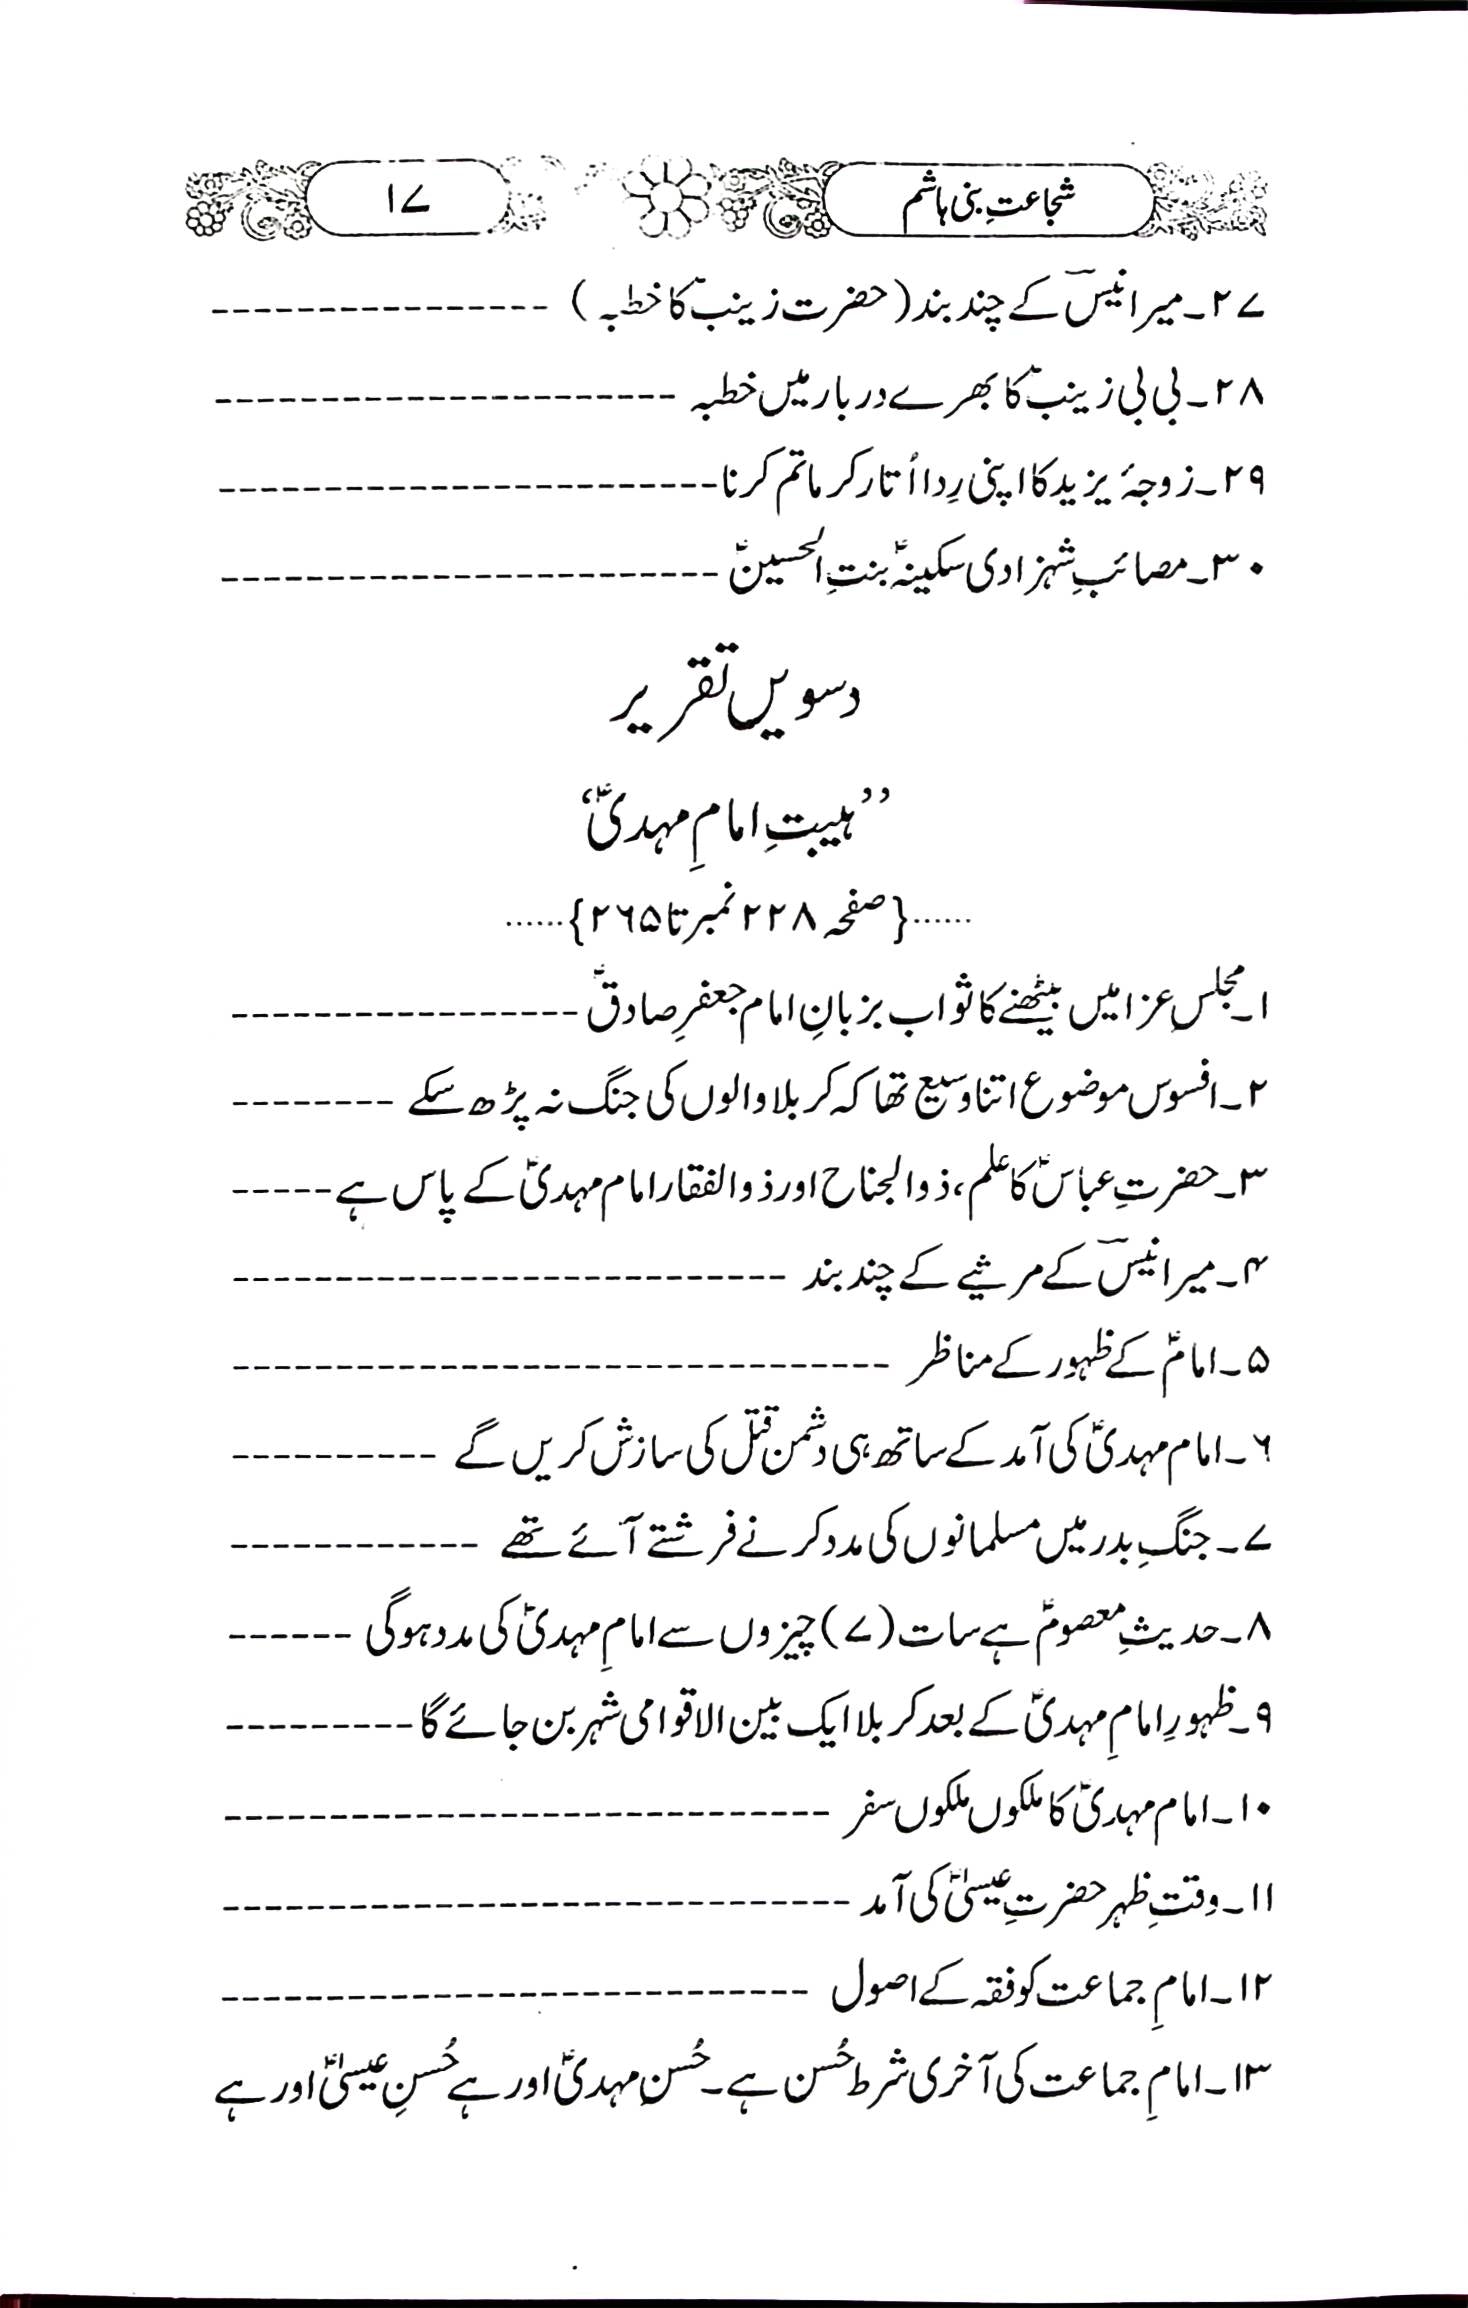 شجاعتِ بنی ہاشم ۱۷
۲۷۔ میر انیسؔ کے چند بند (حضرت زینبؑ کا خطبہ) ----------------
۲۸۔ بی بی زینبؑ کا بھرے دربار میں خطبہ ----------------------
۲۹۔ زوجۂ یزید کا اپنی رِدا اُتار کر ماتم کرنا ------------------------
۳۰۔ مصائبِ شہزادی سکینہؑ بنتِ الحسینؑ ------------------------
دسویں تقریر
’’ہیبتِ امامِ مہدیؑ‘‘
......{صفحہ ۲۲۸ نمبر تا ۲۶۵}......
۱۔ مجلسِ عزا میں بیٹھنے کا ثواب بزبانِ امام جعفرِ صادقؑ -----------------
۲۔ افسوس موضوع اتنا وسیع تھا کہ کربلا والوں کی جنگ نہ پڑھ سکے --------
۳۔ حضرتِ عباسؑ کا علم، ذوالجناح اور ذوالفقار امام مہدیؑ کے پاس ہے -----
۴۔ میر انیسؔ کے مرثیے کے چند بند ---------------------------
۵۔ امامؑ کے ظہور کے مناظر --------------------------------
۶۔ امام مہدیؑ کی آمد کے ساتھ ہی دشمن قتل کی سازش کریں گے ----------
۷۔ جنگِ بدر میں مسلمانوں کی مدد کرنے فرشتے آئے تھے ------------
۸۔ حدیثِ معصومؑ ہے سات (۷) چیزوں سے امامِ مہدیؑ کی مدد ہوگی ------
۹۔ ظہورِ امامِ مہدیؑ کے بعد کربلا ایک بین الاقوامی شہر بن جائے گا ---------
۱۰۔ امام مہدیؑ کا ملکوں ملکوں سفر -----------------------------
۱۱۔ وقتِ ظہر حضرتِ عیسیٰؑ کی آمد ------------------------------
۱۲۔ امامِ جماعت کو فقہ کے اصول ----------------------------
۱۳۔ امامِ جماعت کی آخری شرط حُسن ہے۔ حُسنِ مہدیؑ اور ہے حُسنِ عیسیٰؑ اور ہے